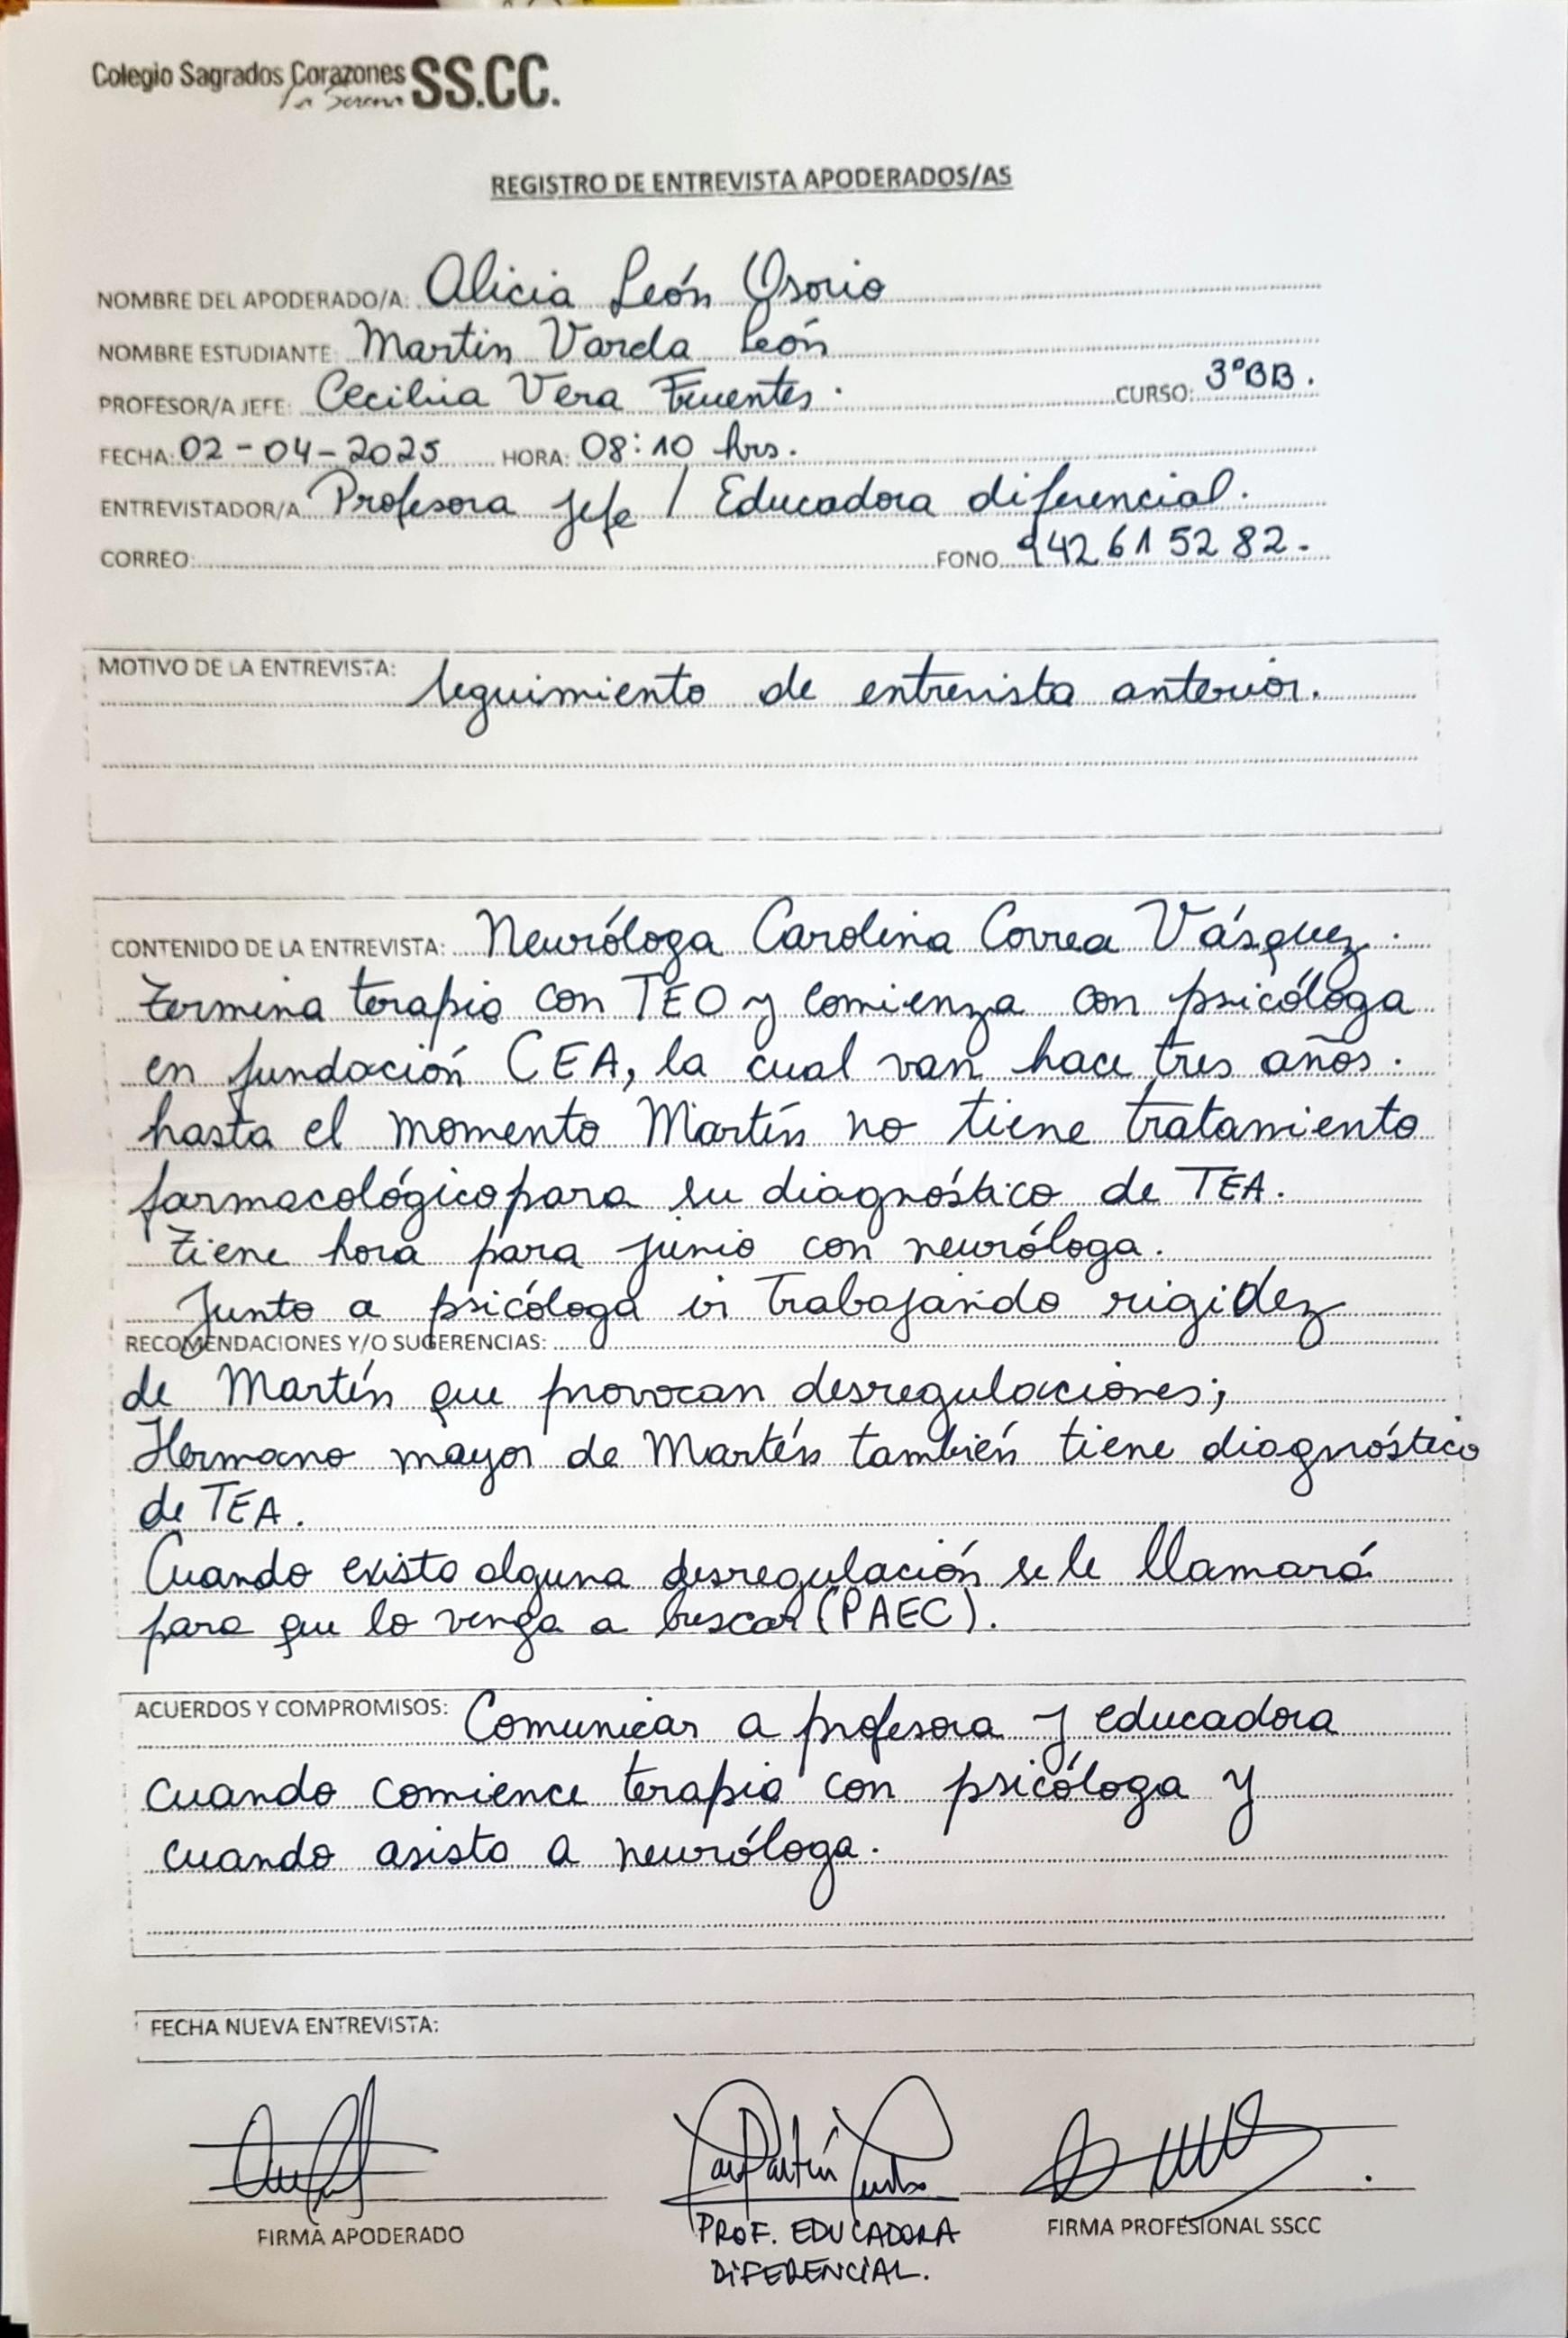 Colegio Sagrados Corazones SS.CC.
La Serena
REGISTRO DE ENTREVISTA APODERADOS/AS
NOMBRE DEL APODERADO/A: Alicia León Osorio
NOMBRE ESTUDIANTE: Martin Varela León
PROFESOR/A JEFE: Cecilia Vera Fuentes. CURSO: 3°BB.
FECHA: 02-04-2025 HORA: 08:10 hrs.
ENTREVISTADOR/A Profesora jefe / Educadora diferencial.
CORREO: FONO 942615282.
MOTIVO DE LA ENTREVISTA: Seguimiento de entrevista anterior.
CONTENIDO DE LA ENTREVISTA: Neuróloga Carolina Correa Vásquez.
Termina terapia con TEO y comienza con psicóloga
en fundación CEA, la cual van hace tres años.
hasta el momento Martín no tiene tratamiento
farmacológico para su diagnóstico de TEA.
Tiene hora para junio con neuróloga.
Junto a psicóloga ir trabajando rigidez
RECOMENDACIONES Y/O SUGERENCIAS:
de Martín que provocan desregulaciones;
Hermano mayor de Martín también tiene diagnóstico
de TEA.
Cuando exista alguna desregulación se le llamará
para que lo venga a buscar (PAEC).
ACUERDOS Y COMPROMISOS: Comunicar a profesora y educadora
cuando comience terapia con psicóloga y
cuando asista a neuróloga.
FECHA NUEVA ENTREVISTA:
FIRMA APODERADO
PROF. EDUCADORA
DIFERENCIAL.
FIRMA PROFESIONAL SSCC